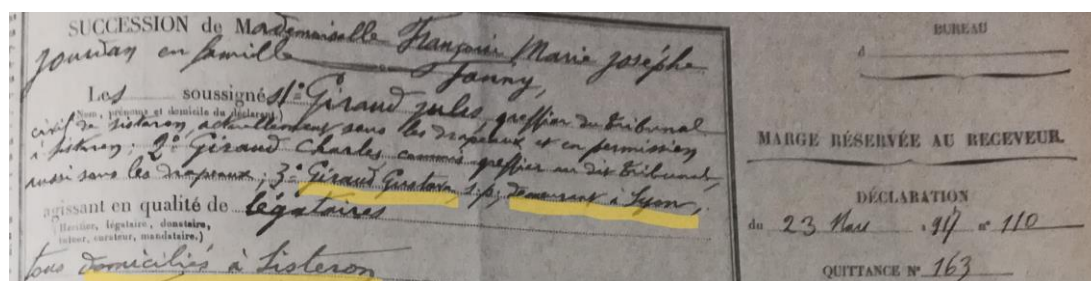 SUCCESSION de Mademoiselle Françoise Marie Josèphe
Jourdan en famille Fanny,
Les soussignés 1° Giraud Jules, greffier du Tribunal
(Nom, prénoms et domicile du déclarant.)
civil de Sisteron, actuellement sous les drapeaux et en permission
à Sisteron; 2° Giraud Charles commis greffier au dit Tribunal,
aussi sous les drapeaux; 3° Giraud Gustave, s.p. demeurant à Lyon,
agissant en qualité de légataires
(Héritier, légataire, donataire,
tuteur, curateur, mandataire.)
tous domiciliés à Sisteron
BUREAU
d
MARGE RÉSERVÉE AU RECEVEUR.
DÉCLARATION
du 23 Mars 1917 n° 110
QUITTANCE N° 163